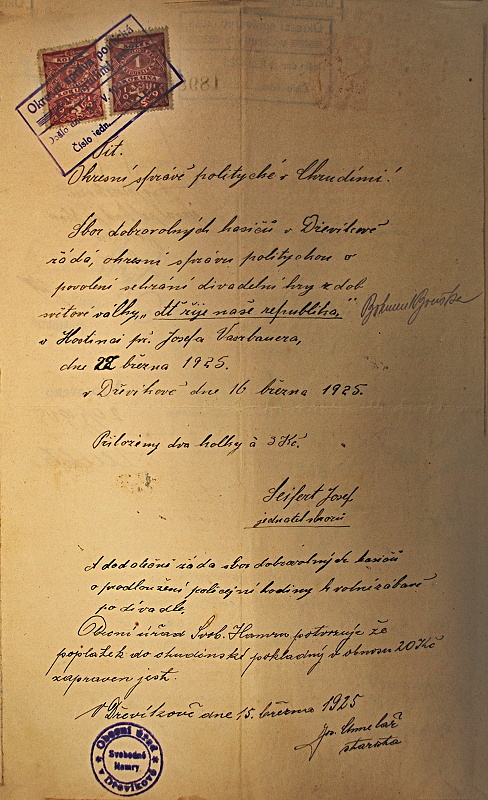 Tit.
Okresní správě politycké v Chrudimi!
Sbor dobrovolných hasičů v Dřevíkově
žádá, okresní správu polityckou o
povolení sehrání divadelní hry z dob
světové války, „Ať žije naše republika,"
v Hostinci pí. Josefa
dne 22 března 1925.
v Dřevíkově dne 16 března 1925.
Přiloženy dva kolky à 3 Kč.
Seifert Josef
jednatel sboru
A dodatečně žádá sbor dobrovolných hasičů
o prodloužení policejní hodiny k volní zábavě
po divadle
Obecní úřad Svob. Hamry potvrzuje že
poplatek do chudinské pokladny v obnosu 20 Kč
zapraven jest.
V dne 15. března 1925
Jos. Chmelař
starosta
Obecní úřad
Svobodné
Hamry
v Dřevíkově